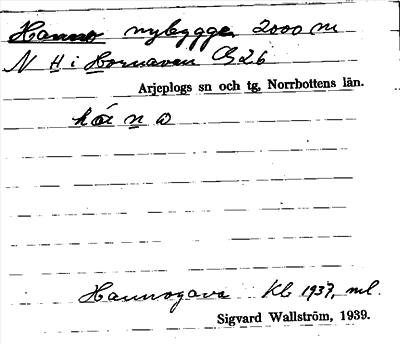 Hanno nybygge 2000 m
N H i Hornavan C26
Arjeplogs sn och tg, Norrbottens län.
Hannogava Kb 1937, ml.
Sigvard Wallström, 1939.